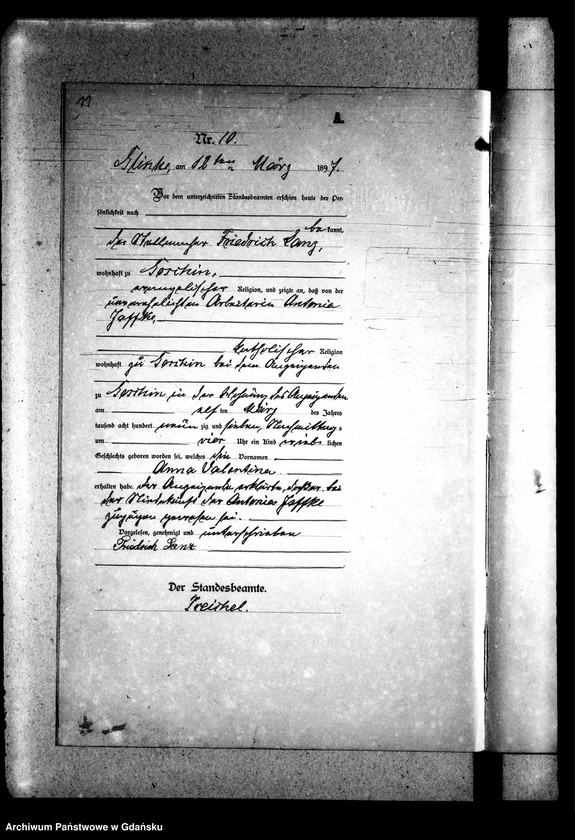 A.
Nr. 10.
am 12ten März 1897.
Vor dem unterzeichneten Standesbeamten erschien heute, der Per-
sönlichkeit nach
bekannt,
der Friedrich Lanz,
wohnhaft zu
evangelischer Religion, und zeigte an, daß von der
unverehelichten Arbeiterin Antonie
Jaffke,
katholischer Religion
wohnhaft zu bei dem Anzeigenden
zu in der Wohnung des Anzeigenden
am elften März des Jahres
tausend acht hundert neunzig und sieben, Nachmittags
um vier Uhr ein Kind weiblichen
Geschlechts geboren worden sei, welches die Vornamen
Anna Valentina
erhalten habe. Der Anzeigende erklärte, daß er bei
der Niederkunft der Antonie Jaffke
zugegen gewesen sei.
Vorgelesen, genehmigt und unterschrieben
Friedrich Lanz
Der Standesbeamte.
Treichel.
Archiwum Państwowe w Gdańsku